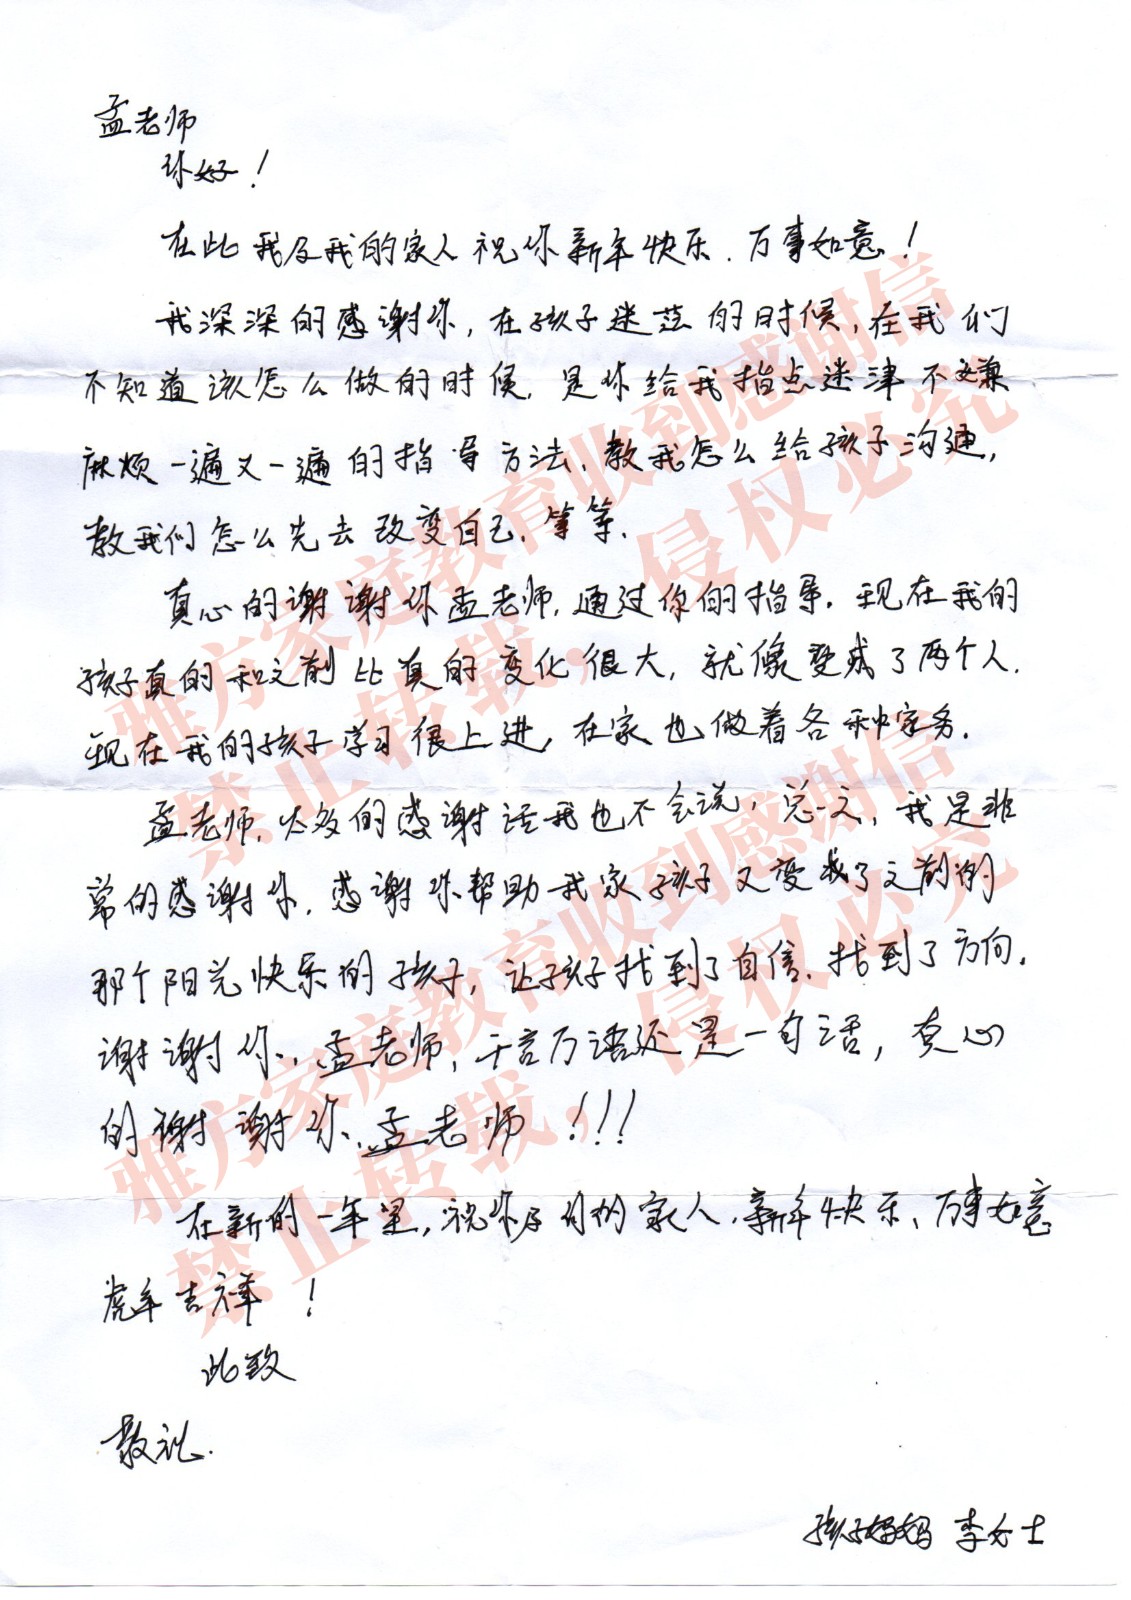 孟老师
你好！
在此我及我的家人祝你新年快乐.万事如意！
我深深的感谢你，在孩子迷茫的时候，在我们
不知道该怎么做的时候.是你给我指点迷津不嫌
麻烦一遍又一遍的指导方法、教我怎么给孩子沟通，
教我们怎么先去改变自己.等等.
真心的谢谢你孟老师.通过你的指导.现在我的
孩子真的和之前比真的变化很大，就像变成了两个人.
现在我的孩子学习很上进，在家也做着各种家务.
孟老师.太多的感谢话我也不会说，总之，我是非
常的感谢你.感谢你帮助我家孩子又变成了之前的
那个阳光快乐的孩子，让孩子找到了自信.找到了方向.
谢谢你、孟老师，千言万语还是一句话，真心
的谢谢你、孟老师！！！
在新的一年里，祝你及你的家人.新年快乐、万事如意
虎年吉祥！
此致
敬礼.
孩子妈妈 李女士
雅方家庭教育收到感谢信
禁止转载，侵权必究
雅方家庭教育收到感谢信
禁止转载，侵权必究